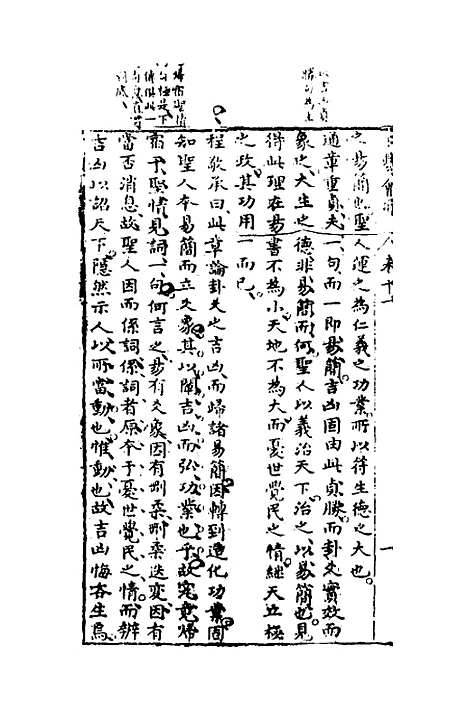 之易簡也聖人運之為仁義之功業所以符生德之大也
通章重貞夫一句而一即易簡吉凶固由此貞勝而卦爻實效而
象之大生之德非易簡而何聖人以義治天下治之以易簡也見
得此理在易書不為小天地不為大而憂世覺民之情繼天立極
之政其功用一而已
程敬承曰此章論卦爻之吉凶而歸諸易簡因轉到造化功業固
知聖人本易簡而立爻象其以闡吉凶而弘功業也乎故究竟歸
宿于聖情見詞一句何言之易有爻象因有剛柔剛柔迭變因有
當否消息故聖人因而係詞係詞者原本于憂世覺民之情而辨
吉凶以詔天下隱然示人以所當動也惟動也故吉凶悔吝生焉